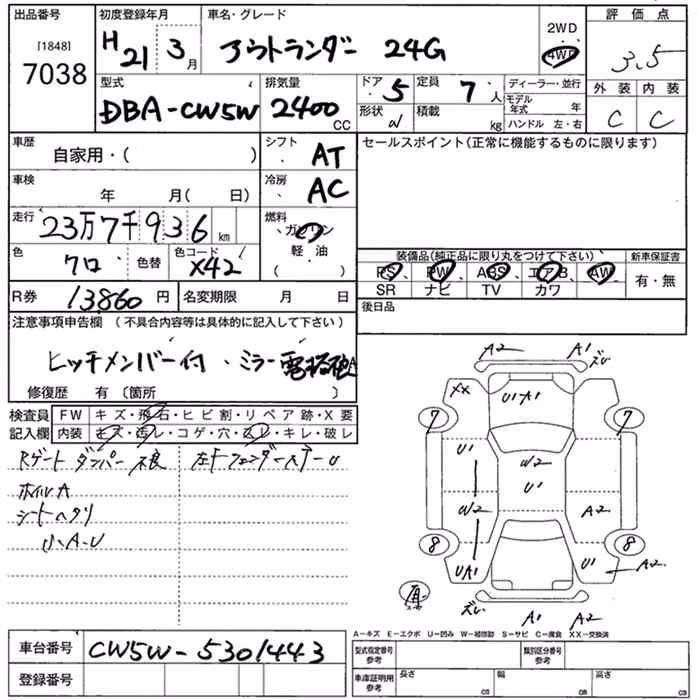 出品番号 初度登録年月 車名・グレード 2WD 評価点
[1848]
7038 H21 3月 アウトランダー 24G 4WD 3.5
型式 排気量 ドア 定員 ディーラー・並行 外装 内装
DBA-CW5W 2400 CC 5 7人 モデル年式 年
形状 W 積載 kg ハンドル 左・右 C C
車歴 シフト セールスポイント(正常に機能するものに限ります)
自家用・( ) AT
車検 冷房
年 月( 日) AC
走行 燃料
23万7千936 km ガソリン
色 色替 色コード 軽油 装備品(純正品に限り丸をつけて下さい) 新車保証書
クロ X42 ( ) PS PW ABS エアB AW 有・無
SR ナビ TV カワ
R券 13860円 名変期限 月 日 後日品
注意事項申告欄 (不具合内容等は具体的に記入して下さい)
ヒッチメンバー付・ミラー電格
修復歴 有〔箇所 〕
検査員 FW キズ・飛石・ヒビ割・リペア跡・X要
記入欄 内装 キズ・汚レ・コゲ・穴・ キレ・破レ
Rゲートダンパー不良 左Fフェンダー
ホイルA
シートヘタリ
U・A・U
A2 A1 ズレ
XX U1・A1
7 7
U1 W2
U1
W2 A2
8 8
UA1 U1 A2
ズレ A1 A2
A−キズ E−エクボ U−凹み W−補修跡 S−サビ C−腐食 XX−交換済
車台番号 CW5W-5301443 型式指定番号 参考 類別区分番号 参考
登録番号 車庫証明用 参考 長さ cm 幅 cm 高さ cm